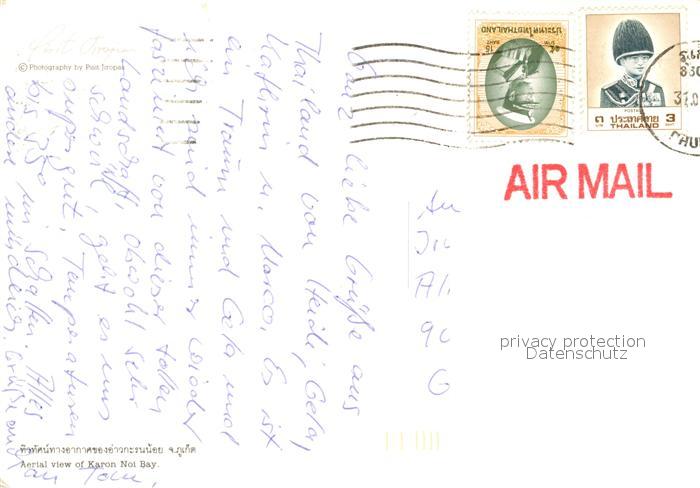 Pisit Jiropas
© Photography by Pisit Jiropas
Ganz liebe Grüße aus
Thailand von Heidi, Gela,
Kathrin u. Marco. Es ist
ein Traum und Gela und
ich sind immer wieder
fasziniert von dieser tollen
Landschaft, obwohl sehr
schwül, geht es uns
super gut, Temperaturen
bis 35° im Schatten. Alles
andere mündlich. Grüße auch
an Tom,
ทิวทัศน์ทางอากาศของอ่าวกะรนน้อย จ.ภูเก็ต
Aerial view of Karon Noi Bay.
ประเทศไทย THAILAND
15
BAHT
POSTAGE
๓ ประเทศไทย 3
THAILAND
830
31.0
AIR MAIL
An
90
privacy protection
Datenschutz